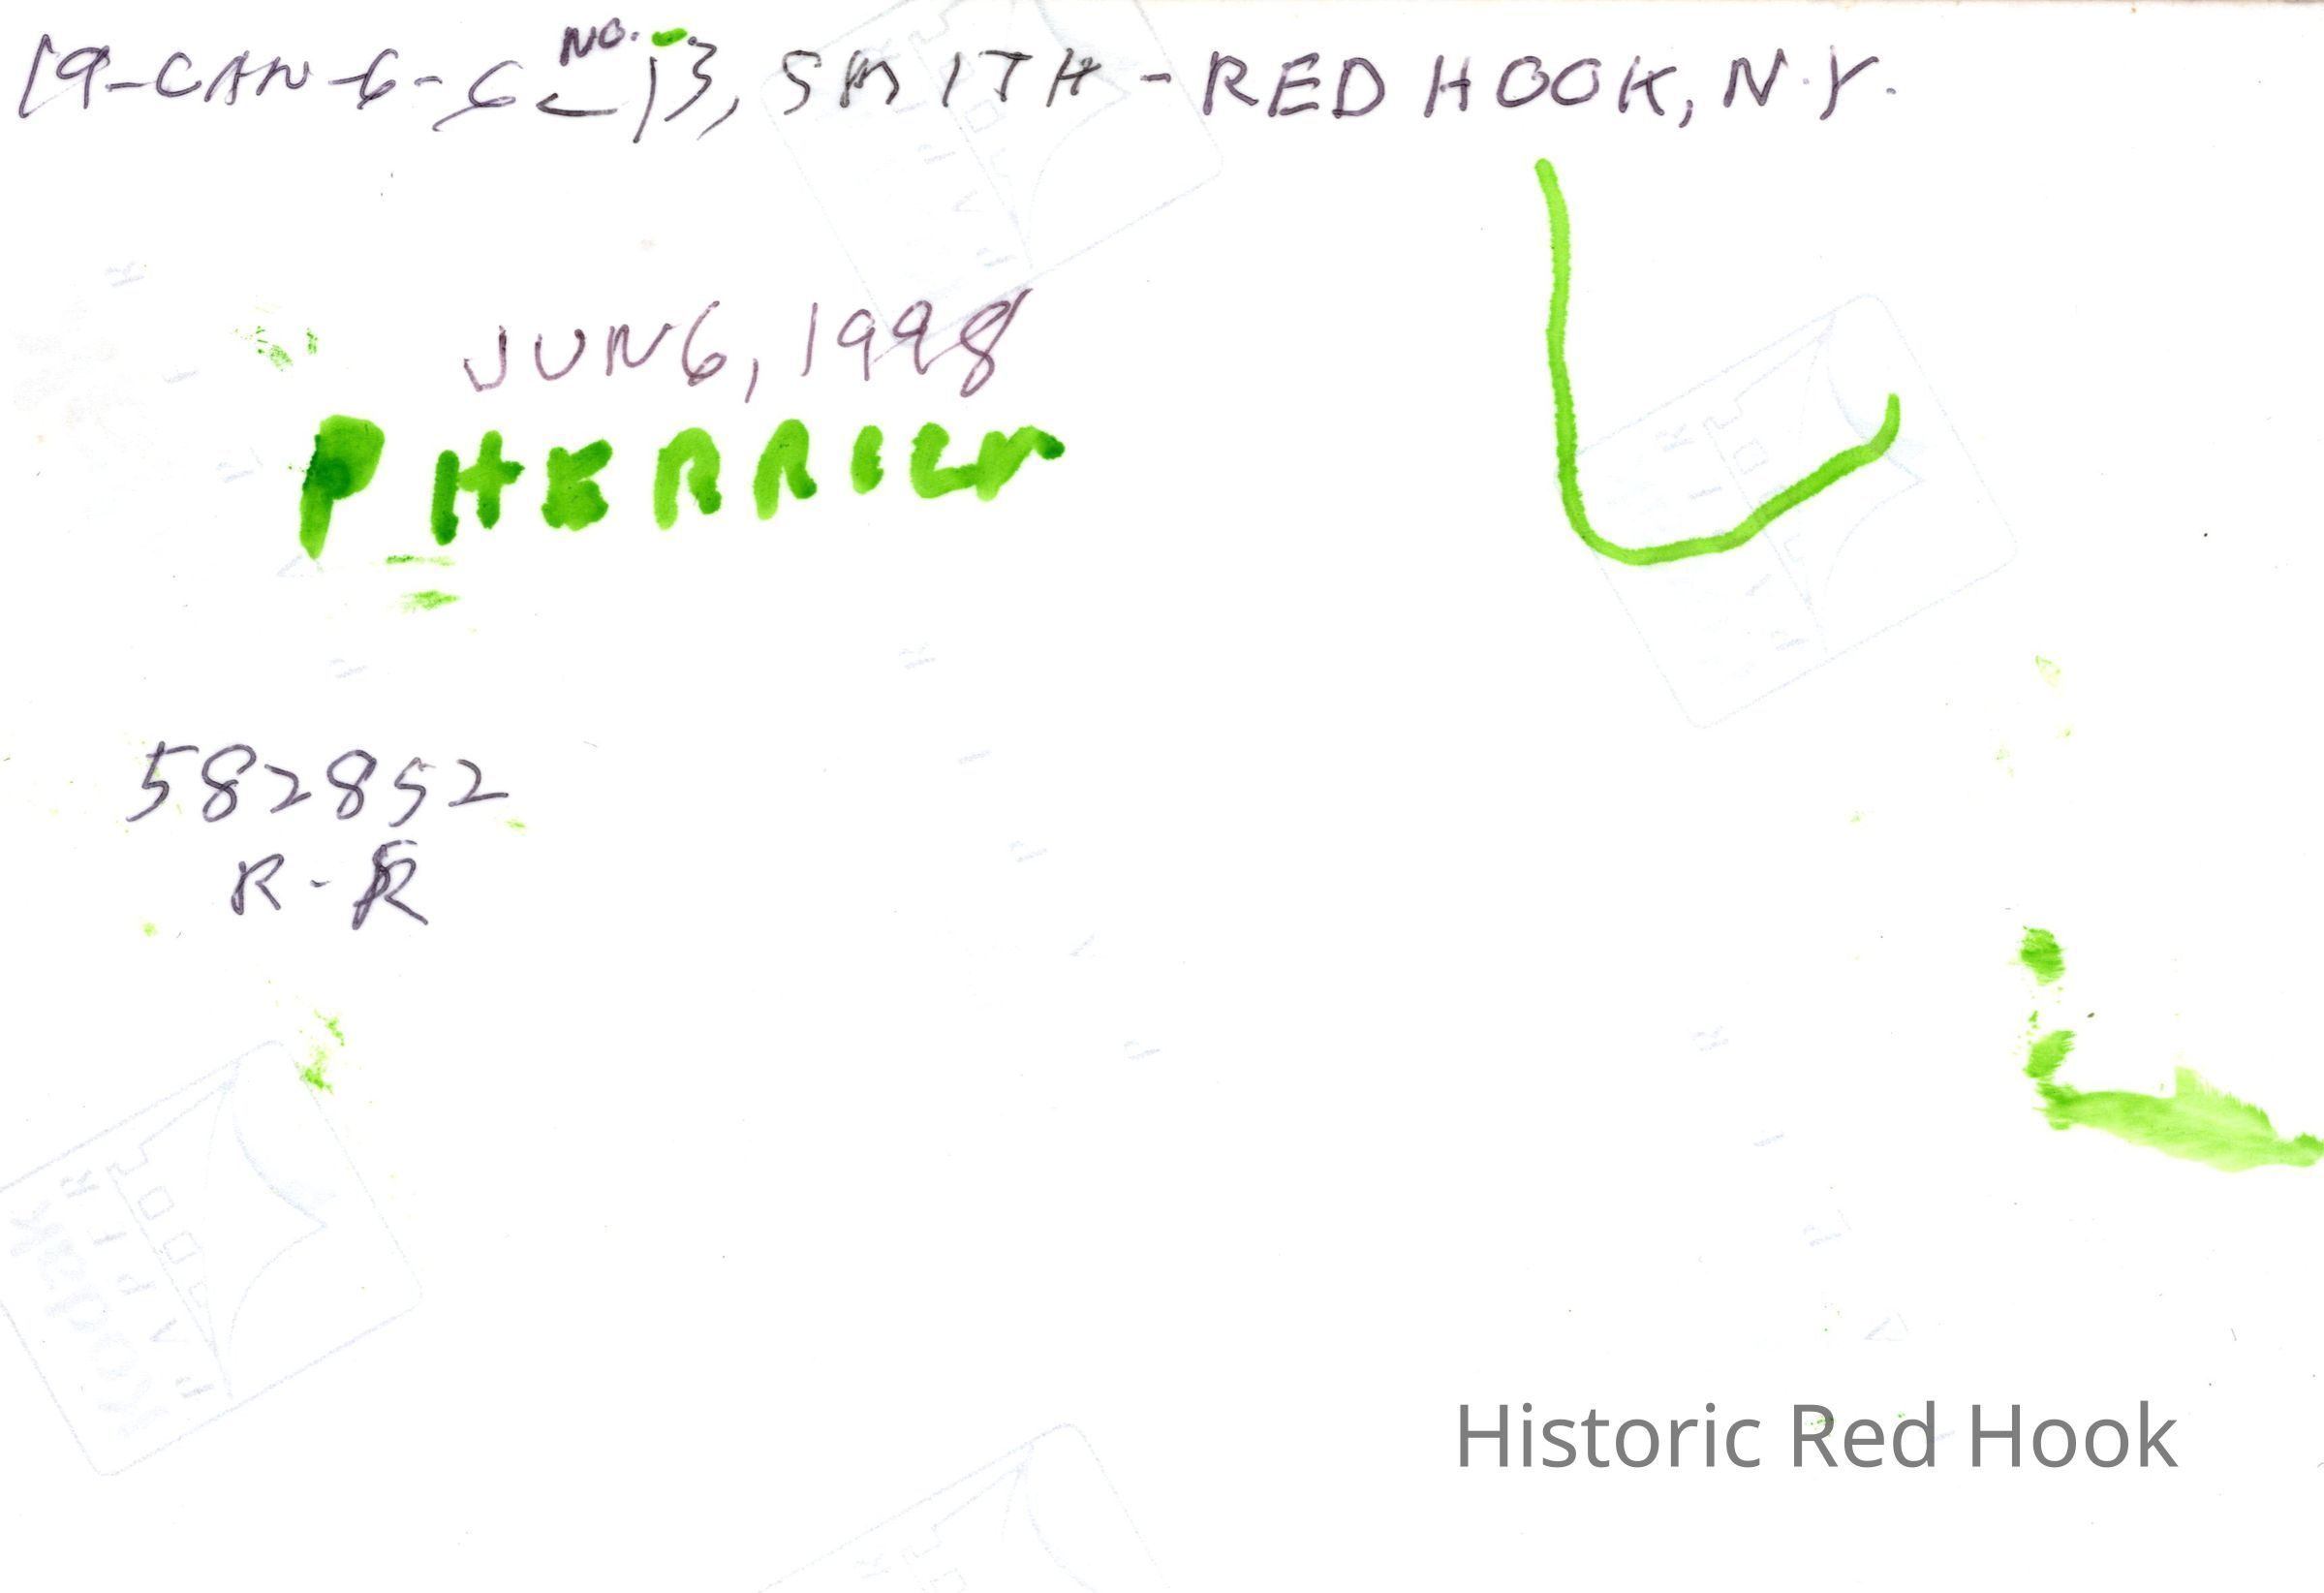 19-CAN-6-6 NO. 13, SMITH-RED HOOK, N.Y.
JUN 6, 1998
P HERRICK
582852
R-R
Kodak
PAPIER
Historic Red Hook